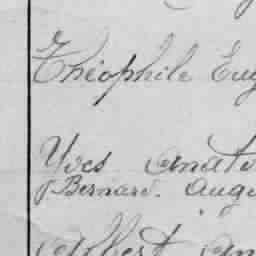 Théophile Eug
Yves Anato
Bernard. Augu
Albert An